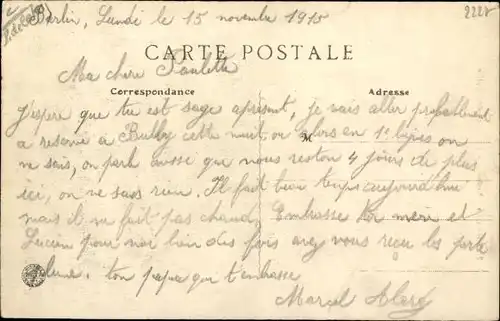 Barlin, Lundi le 15 novembre 1915
2227
CARTE POSTALE
Ma chere Paulette
Correspondance
Adresse
J'espere que tu est sage apresent, je vais aller probablement
a reserve à Bully cette nuit, ou alors en 1e lignes on
M
ne sais, on parle aussi que nous reston 4 jours de plus
ici, on ne sais rien. Il fait bien temps aujourd'hui
mais il ne fait pas chaud. Embrasse ta mere et
Lucien pour moi bien des fois avez vous recu les porte
plume. ton papa qui t'embrasse
Marcel